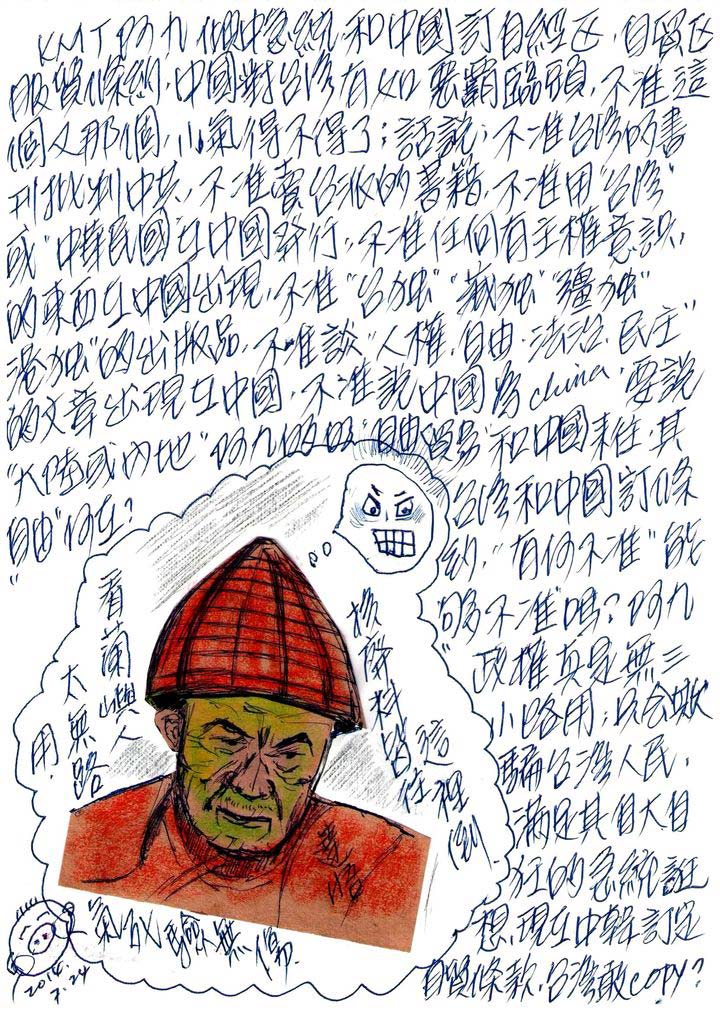 KMT阿九傾中急統和中國訂自經区,自貿区
服貿條約,中國對台灣有如惡霸臨頭,不准這
個又那個,小氣得不得了;話說,不准台灣的書
刊批判中共,不准賣台派的書籍,不准用"台灣"
或"中華民國"在中國發行,不准任何有主權意識,
的東西在中國出現,不准"台独""藏独""疆独"
港独"的出版品,不准談"人權,自由,法治,民主"
的文章出現在中國,不准說中國為china,要說
"大陸或內地"阿九的"自由貿易"和中國來往,其
自由"何在?
台灣和中國訂條
約,"有何不准"能
夠不准"嗎?阿九
政權真是無三
小路用;只會欺
騙台灣人民,
滿足其自大自
狂的急統誑
想,現在中韓訂定
自貿條款,台灣敢copy?
核廢料皆往
這裡倒
看蘭嶼人
太無路
用
氣
無
2014.
7.24